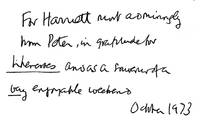 For Harriett most admiringly
from Peter, in gratitude for
Literacies and as a souvenir of a
very enjoyable weekend
October 1973